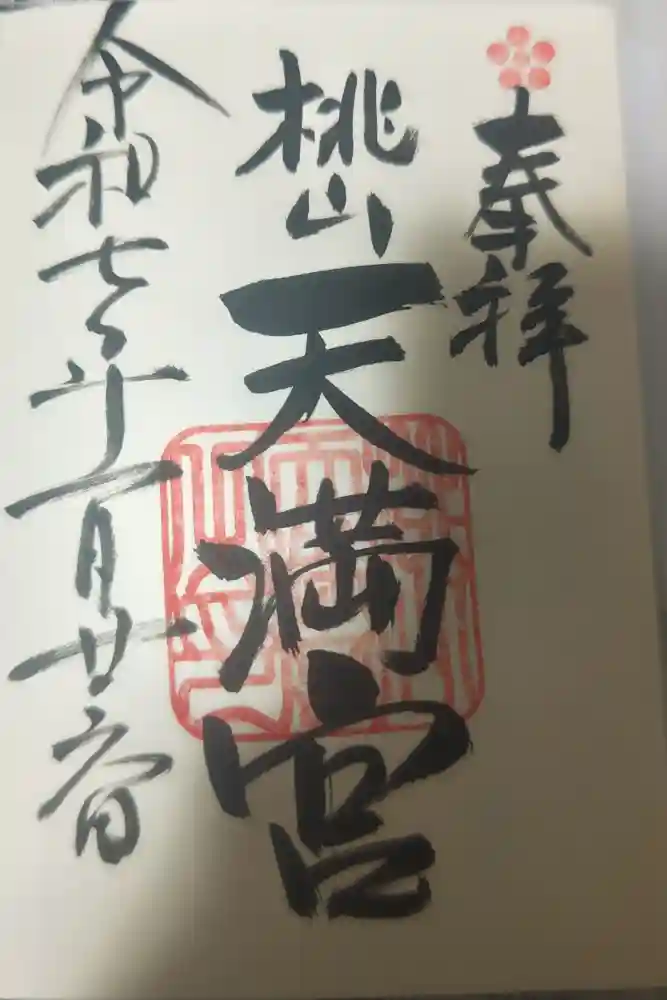 奉拝
桃山天満宮
令和七年一月廿六日